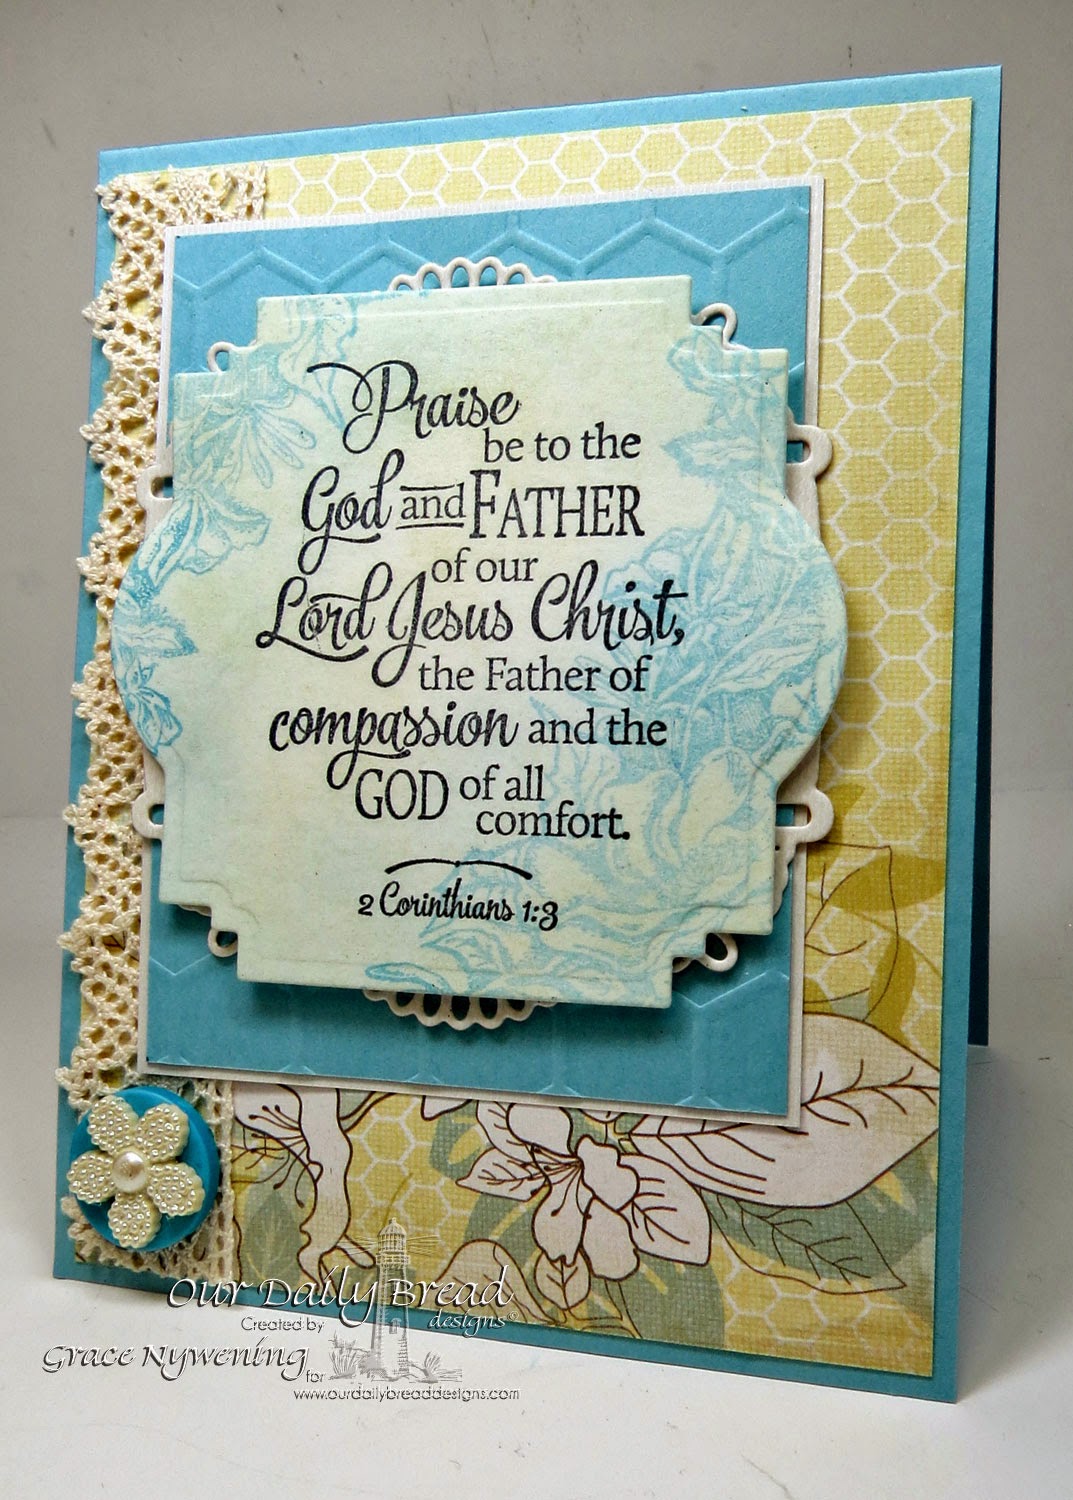 Praise
be to the
God and FATHER
of our
Lord Jesus Christ,
the Father of
compassion and the
GOD of all
comfort.
2 Corinthians 1:3
Our Daily Bread
designs©
Created by
Grace Nywening
for
www.ourdailybreaddesigns.com